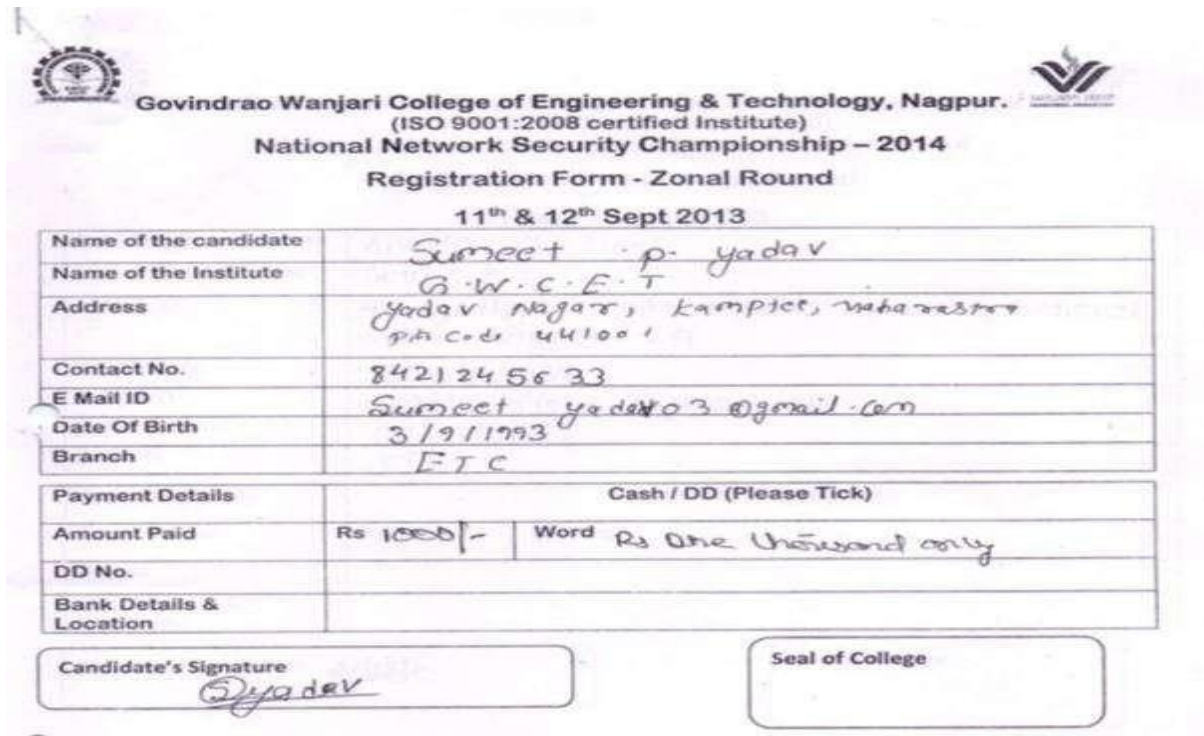 Govindrao Wanjari College of Engineering & Technology, Nagpur.
(ISO 9001:2008 certified Institute)
National Network Security Championship – 2014
Registration Form - Zonal Round
11th & 12th Sept 2013
Name of the candidate Sumeet . p. yadav
Name of the Institute G.W.C.E.T
Address yadav Nagar, Kamptee,
Pin Code 441001
Contact No. 8421245633
E Mail ID Sumeet @gmail.com
Date Of Birth 3/9/1993
Branch ETC
Payment Details Cash / DD (Please Tick)
Amount Paid Rs 1000/- Word Rs One thousand only
DD No.
Bank Details &
Location
Candidate's Signature Seal of College
Syadav